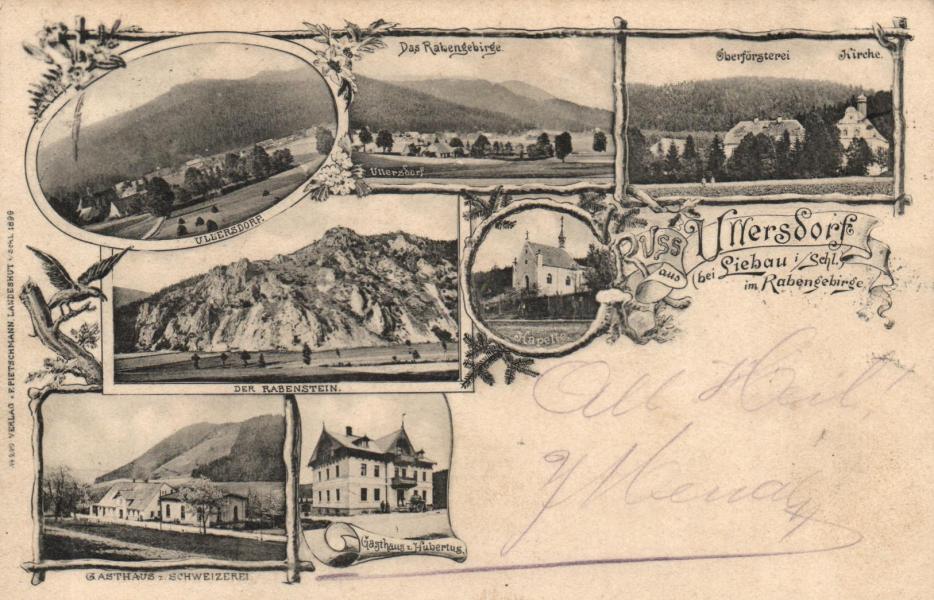 Das Rabengebirge.
Oberförsterei Kirche.
Ullersdorf.
ULLERSDORF.
Gruss
aus
Ullersdorf
bei Liebau i/Schl.
im Rabengebirge.
Kapelle.
DER RABENSTEIN.
VERLAG v. F. PIETSCHMANN, LANDESHUT i. SCHL. 1899
All Heil
Gasthaus z. Hubertus.
GASTHAUS z. SCHWEIZEREI